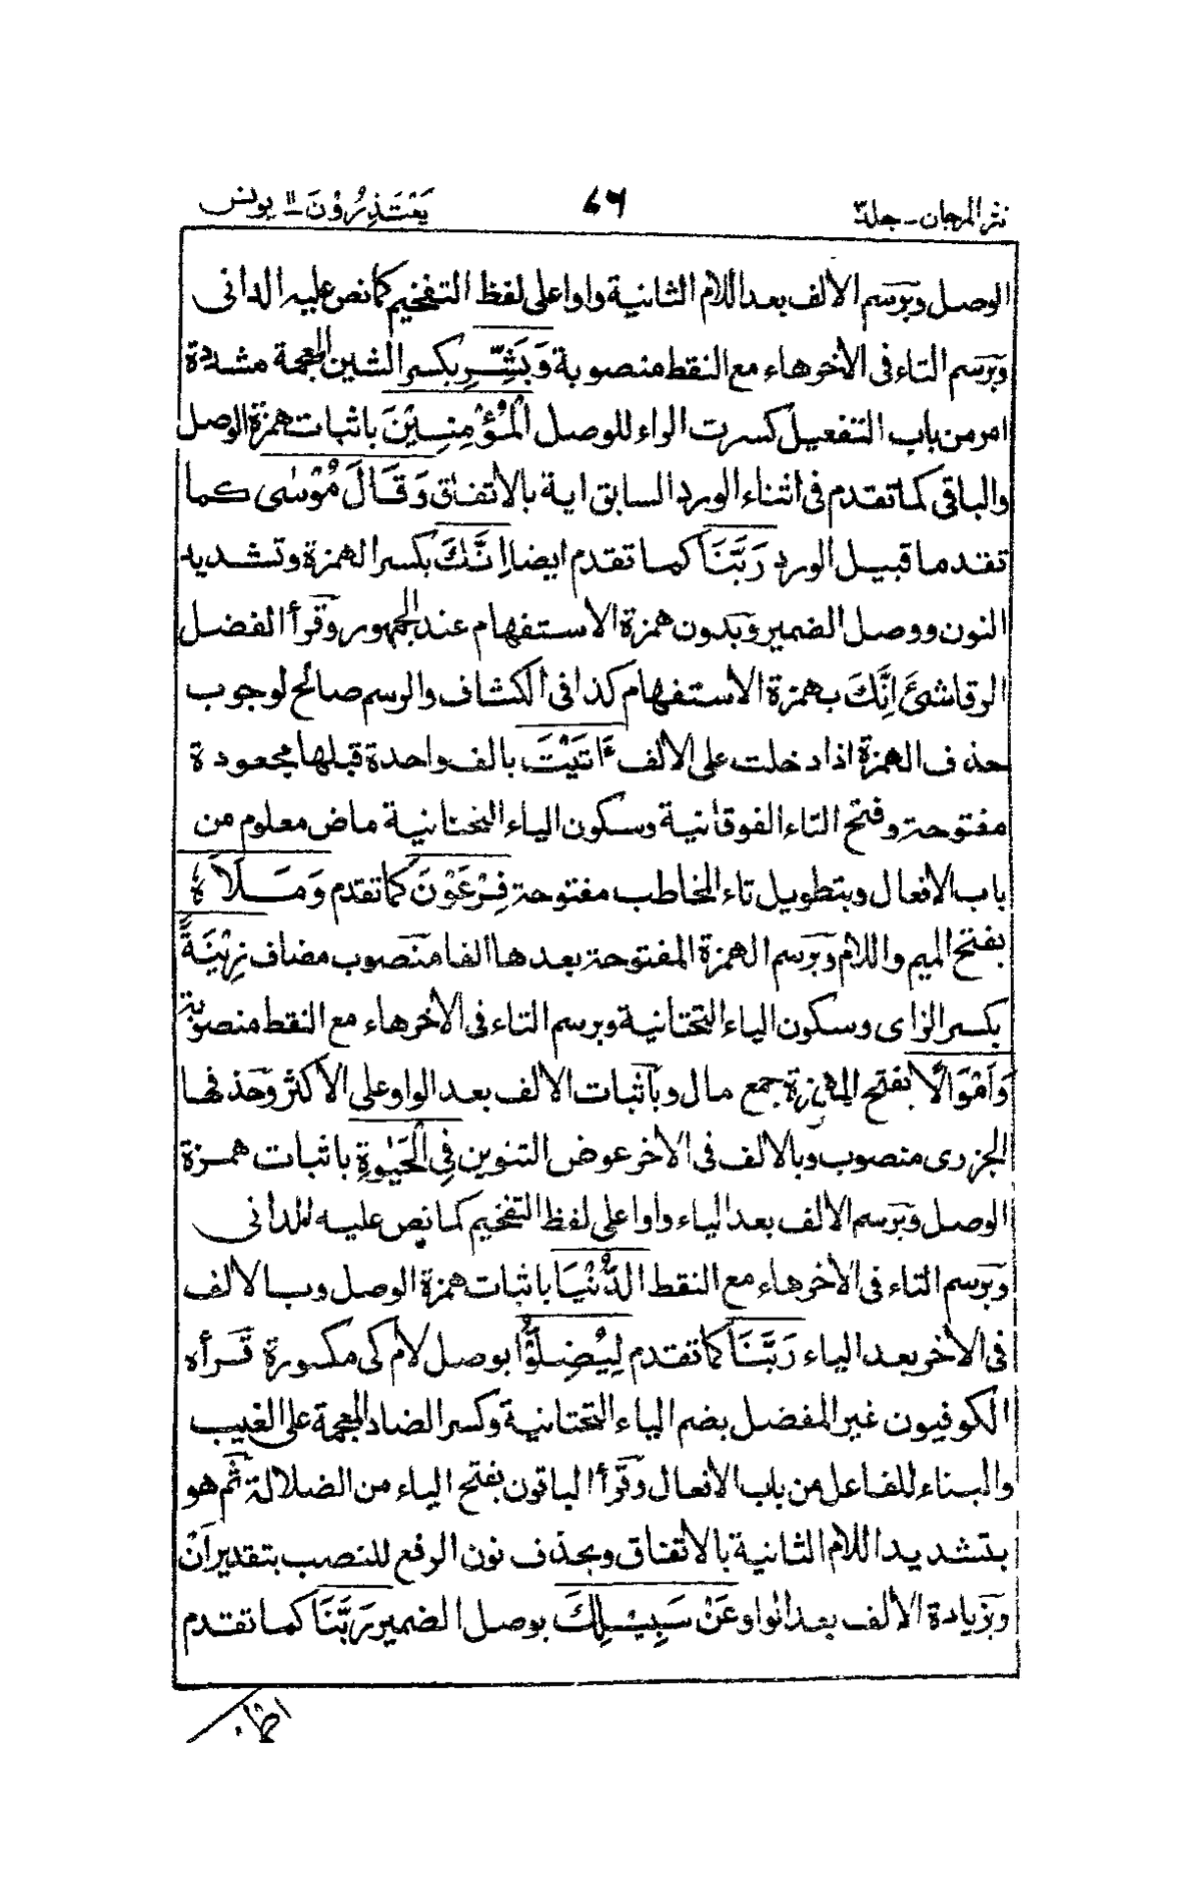 نثر المرجان ـ جلد ٣ ٧٦ يَعْتَذِرُوْنَ ١١ يونس
الوصل وبَرسم الالف بعد اللام الثانية واوا على لفظ التفخيم كما نص عليه الدانى
وبَرسم التاء فى الأخر هاء مع النقط منصوبة وَبَشِّرِ بكسر الشين المعجمة مشددة
امر من باب التفعيل كسرت الراء للوصل الْمُؤْمِنِيْنَ باثبات همزة الوصل
والباقى كما تقدم فى اثناء الورد السابق اية بالاتفاق وَقَالَ مُوْسٰى كما
تقدم ما قبيل الورد رَبَّنَا كما تقدم ايضا اِنَّكَ بكسر الهمزة وتشديد
النون ووصل الضمير وبَدون همزة الاستفهام عند الجمهور وقَرأ الفضل
الرقاشىَّ اَئِنَّكَ بهمزة الاستفهام كذا فى الكشاف والرسم صالح لوجوب
حذف الهمزة اذا دخلت على الالف ءَاتَيْتَ بالف واحدة قبلها مجعودة
مفتوحة وفتح التاء الفوقانية وسكون الياء التحتانية ماض معلوم من
باب الافعال وبتطويل تاء المخاطب مفتوحة فِرْعَوْنَ كما تقدم وَمَلَاَهٗ
بفتح الميم واللام وبَرسم الهمزة المفتوحة بعدها الفا منَصوب مضاف زِيْنَةً
بكسر الزاى وسكون الياء التحتانية وبرسم التاء فى الأخر هاء مع النقط منصوبة
وَاَمْوَالًا بفتح الهمزة جمع مال وبَاثبات الالف بعد الواو على الاكثر وحَذفها
الجزرى منصوب وبالالف فى الأخر عوض التنوين فِى الْحَيٰوةِ باثبات همزة
الوصل وبَرسم الالف بعد الياء واوا على لفظ التفخيم كما نص عليه الدانى
وبَرسم التاء فى الأخر هاء مع النقط الدُّنْيَا باثبات همزة الوصل وبالالف
فى الأخر بعد الياء رَبَّنَا كما تقدم لِيُضِلُّوْا بوصل لام كى مكسورة قَرأه
الكوفيون غير المفضل بضم الياء التحتانية وكسر الضاد المعجمة على الغيب
والبناء للفاعل من باب الافعال وقَرأ الباقون بفتح الياء من الضلالة ثَم هو
بتشديد اللام الثانية بالاتفاق وبحذف نون الرفع للنصب بتقدير اَنْ
وبَزيادة الالف بعد الواو عَنْ سَبِيْلِكَ بوصل الضمير رَبَّنَا كما تقدم